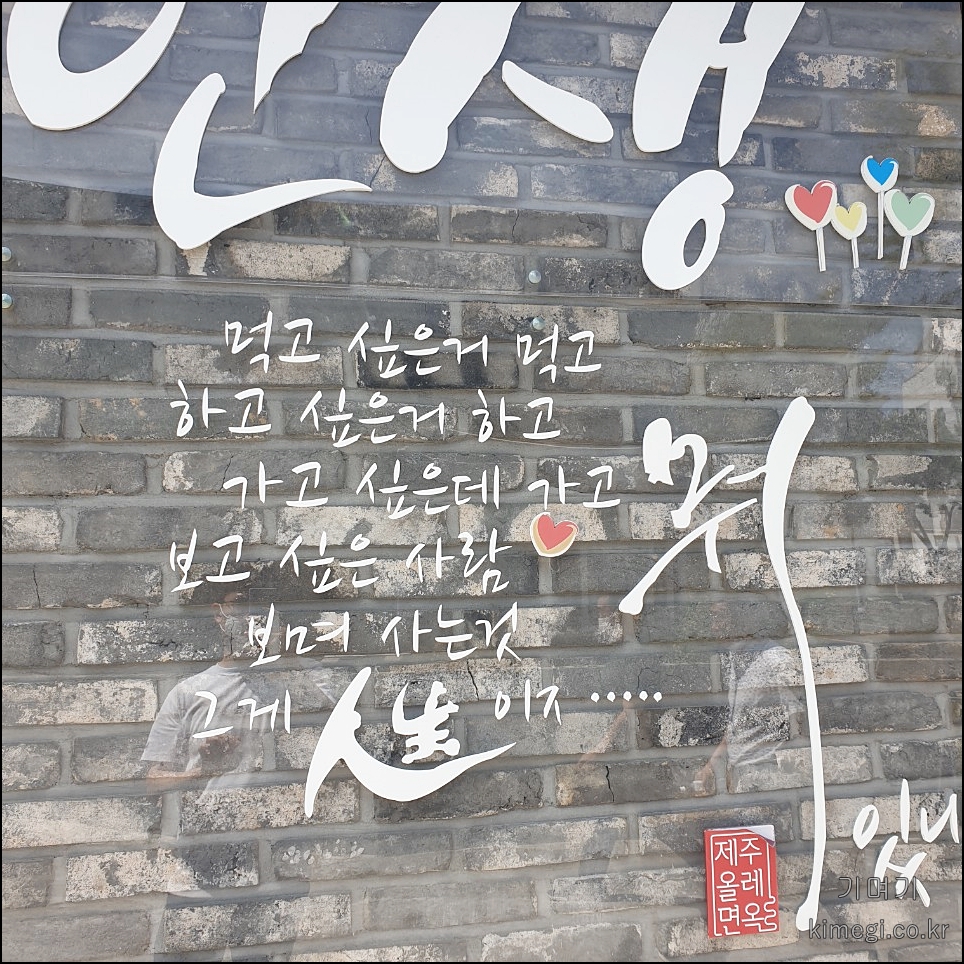 인생
먹고 싶은거 먹고
하고 싶은거 하고
가고 싶은데 가고
보고 싶은 사람
보며 사는것
그게 人生 이지 ·····
뭐
있니
제주
올레
면옥
기며기
kimegi.co.kr